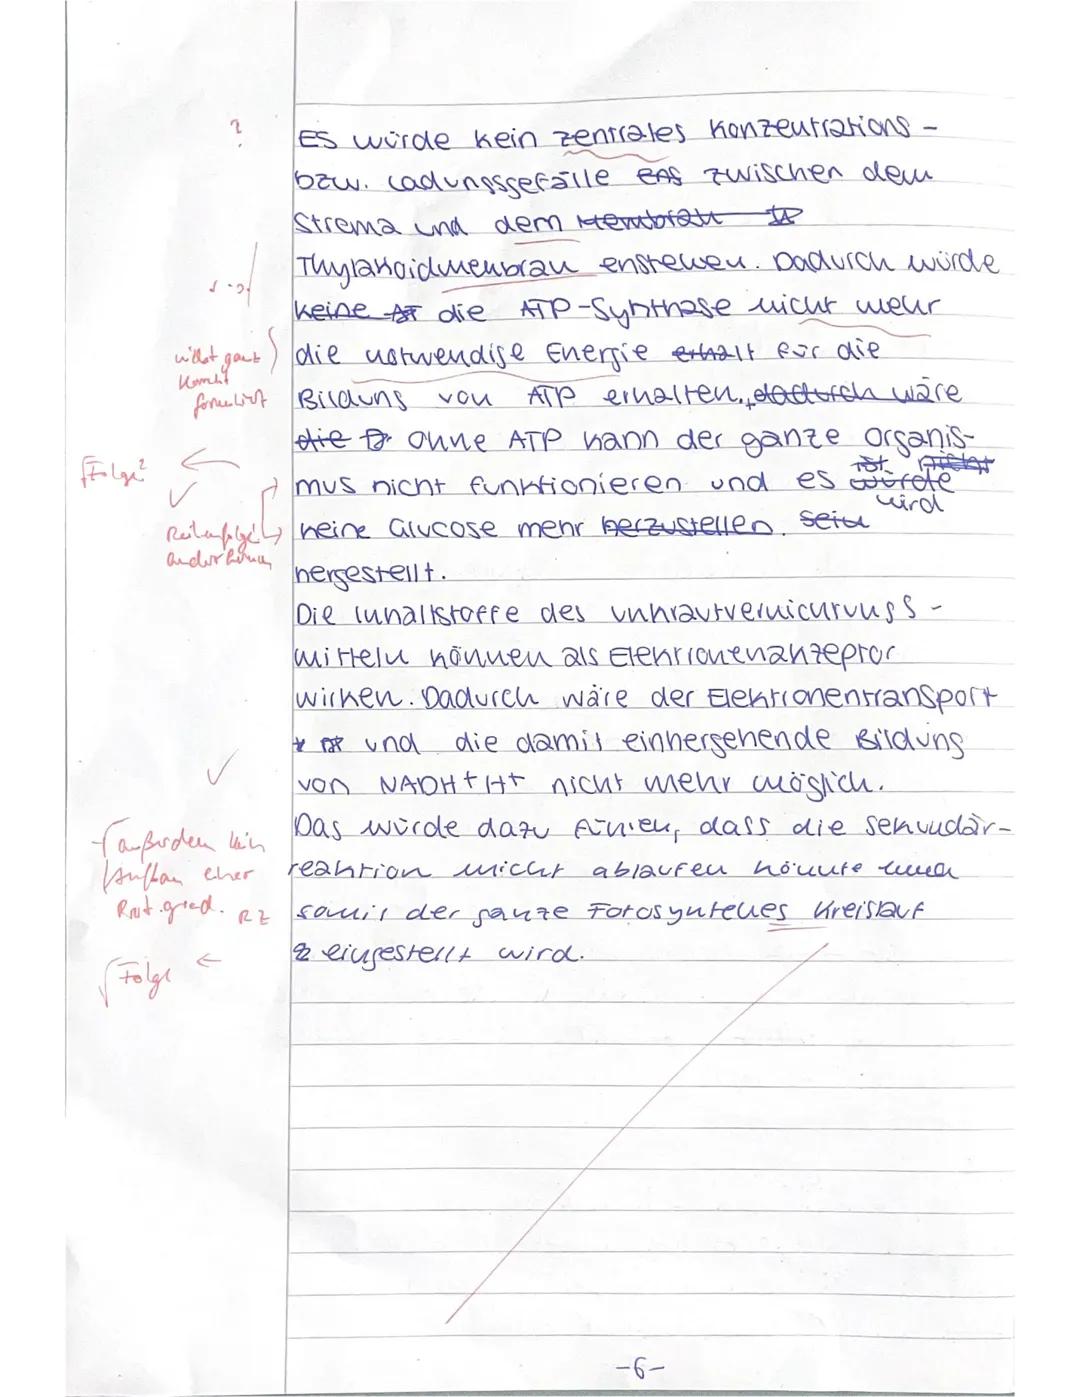 ?
Es würde kein zentrales Konzentrations-
bzw. Ladungsgefälle zwischen dem
Stroma und dem Membran
Thylakoidmembran enstehen. Dadurch würde
keine die ATP-Synthase nicht mehr
die notwendige Energie erhält für die
nicht ganz
korrekt
formuliert
Bildung von ATP erhalten. dadurch wäre
die ohne ATP kann der ganze Organis-
Folge?
mus nicht funktionieren und es würde
ist nicht
wird
Reihenfolge
andersherum
keine Glucose mehr herzustellen. sein
hergestellt.
Die Inhaltstoffe des Unkrautvernichtungs-
mitteln können als Elektronenakzeptor
wirken. Dadurch wäre der Elektronentransport
und die damit einhergehende Bildung
von NADH+H+ nicht mehr möglich.
Das würde dazu führen, dass die Sekundär-
reaktion nicht ablaufen könnte
außerdem kein
Aufbau einer
Prot.grad. RZ
somit der ganze Fotosyntehes Kreislauf
eingestellt wird.
Folge
-6-